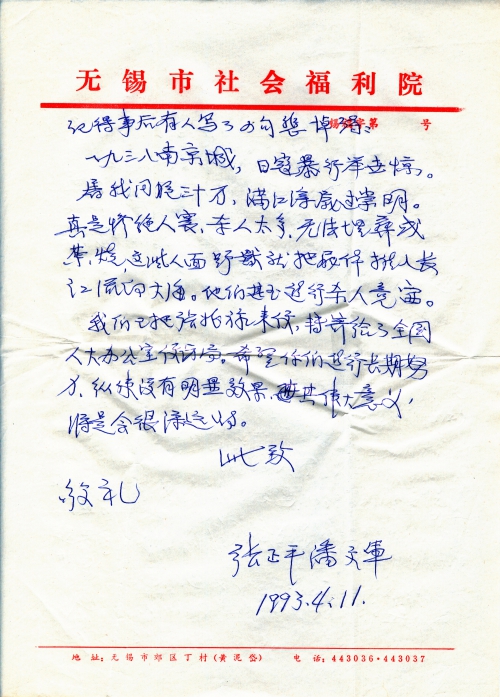 无锡市社会福利院
福 字第 号
记得事后有人写了四句悲悼诗：
一九三八南京城，日寇暴行举世惊。
屠我同胞三十万，满江浮尸过崇明。
真是惨绝人寰，杀人太多，无法埋葬或
焚烧，这些人面野兽就把死体抛入长
江流向大海。他们甚至进行杀人竞赛。
我们已把徐抬徐来信，特寄给了全国
人大办公室信访局。希望你们进行长期努
力，纵使没有明显效果，其伟大意义，
将是会很深远的。
此致
敬礼
张正平 潘文军
1993.4.11.
地 址：无锡市郊区丁村(黄泥岱) 电 话：443036·443037